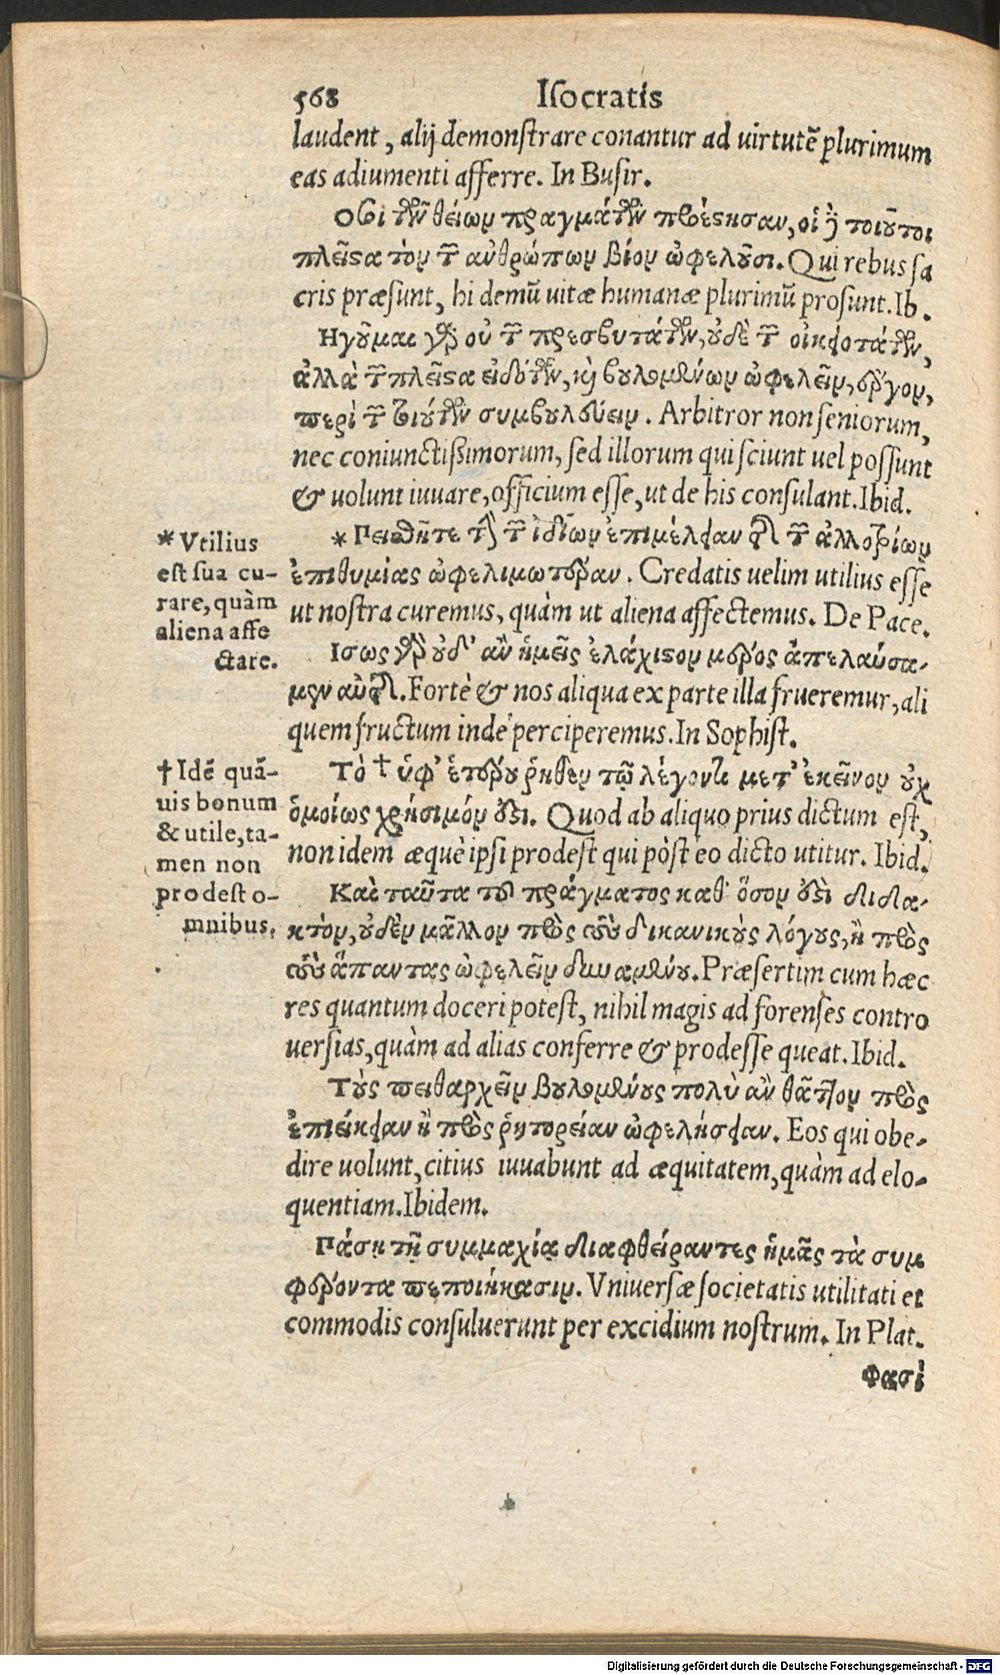 568 Isocratis
laudent, alij demonstrare conantur ad uirtutē plurimum
eas adiumenti afferre. In Busir.
Οϐι τῶν θείων πραγμάτων προέστησαν, οἱ ἢ τοιοῦτοι
πλεῖστα τὸν τῶν ἀνθρώπων βίον ὠφελοῦσι. Qui rebus sa
cris præsunt, hi demū uitæ humanæ plurimū prosunt. Ib.
Ηγοῦμαι γὰρ οὐ τῶν πρεσβυτάτων, οὐδὲ τῶν οἰκειοτάτων,
ἀλλὰ τῶν πλεῖστα εἰδότων, καὶ βουλομένων ὠφελεῖν, ἔργον,
περὶ τῶν τοιούτων συμβουλεύειν. Arbitror non seniorum,
nec coniunctissimorum, sed illorum qui sciunt uel possunt
& uolunt iuuare, officium esse, ut de his consulant. Ibid.
* Vtilius
est sua cu-
rare, quàm
aliena affe
ctare.
* Πεισθῆτε τὴν τῶν ἰδίων ἐπιμέλειαν τῆς τῶν ἀλλοτρίων
ἐπιθυμίας ὠφελιμωτέραν. Credatis uelim utilius esse
ut nostra curemus, quàm ut aliena affectemus. De Pace.
Ισως γὰρ οὐδ' ἂν ἡμεῖς ἐλάχιστον μέρος ἀπελαύσα-
μεν αὐτῆς. Fortè & nos aliqua ex parte illa frueremur, ali
quem fructum inde perciperemus. In Sophist.
† Idē quā-
uis bonum
& utile, ta-
men non
prodest o-
mnibus.
Τὸ † ὑφ' ἑτέρου ῥηθὲν τῷ λέγοντι μετ' ἐκεῖνον οὐχ
ὁμοίως χρήσιμόν ἐστι. Quod ab aliquo prius dictum est,
non idem æquè ipsi prodest qui pòst eo dicto utitur. Ibid.
Καὶ ταῦτα τοῦ πράγματος καθ' ὅσον ἐστὶ διδα-
κτὸν, οὐδὲν μᾶλλον πρὸς τοὺς δικανικοὺς λόγους, ἢ πρὸς
τοὺς ἅπαντας ὠφελεῖν δυναμένου. Præsertim cum hæc
res quantum doceri potest, nihil magis ad forenses contro
uersias, quàm ad alias conferre & prodesse queat. Ibid.
Τοὺς πειθαρχεῖν βουλομένους πολὺ ἂν θᾶττον πρὸς
ἐπιείκειαν ἢ πρὸς ῥητορείαν ὠφελήσειαν. Eos qui obe-
dire uolunt, citius iuuabunt ad æquitatem, quàm ad elo-
quentiam. Ibidem.
Πάσῃ τῇ συμμαχίᾳ διαφθείραντες ἡμᾶς τὰ συμ
φέροντα πεποιήκασιν. Vniuersæ societatis utilitati et
commodis consuluerunt per excidium nostrum. In Plat.
Φασὶ
Digitalisierung gefördert durch die Deutsche Forschungsgemeinschaft - DFG